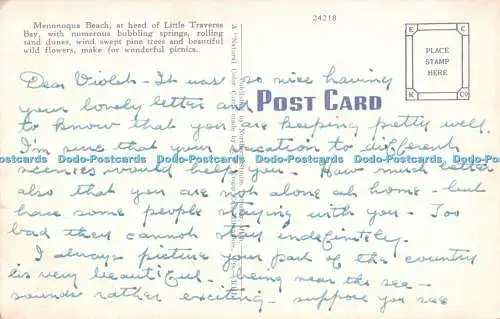 Menonoqua Beach, at head of Little Traverse
Bay, with numerous bubbling springs, rolling
sand dunes, wind swept pine trees and beautiful
wild flowers, make for wonderful picnics.
24218
K C
PLACE
STAMP
HERE
K Co
POST CARD
A "Natural Color Card" made by
Dear Violet - It was so nice having
your lovely letter and
to know that you are keeping pretty well.
I'm sure that your vacation to different
scenes would help you. How much better
also that you are not alone at home - but
have some people staying with you - Too
bad they cannot stay indefinitely.
I always picture your part of the country
as very beautiful - being near the sea -
sounds rather exciting. suppose you see
Dodo-Postcards Dodo-Postcards Dodo-Postcards Dodo-Postcards Dodo-Postcards Dodo-Postcards